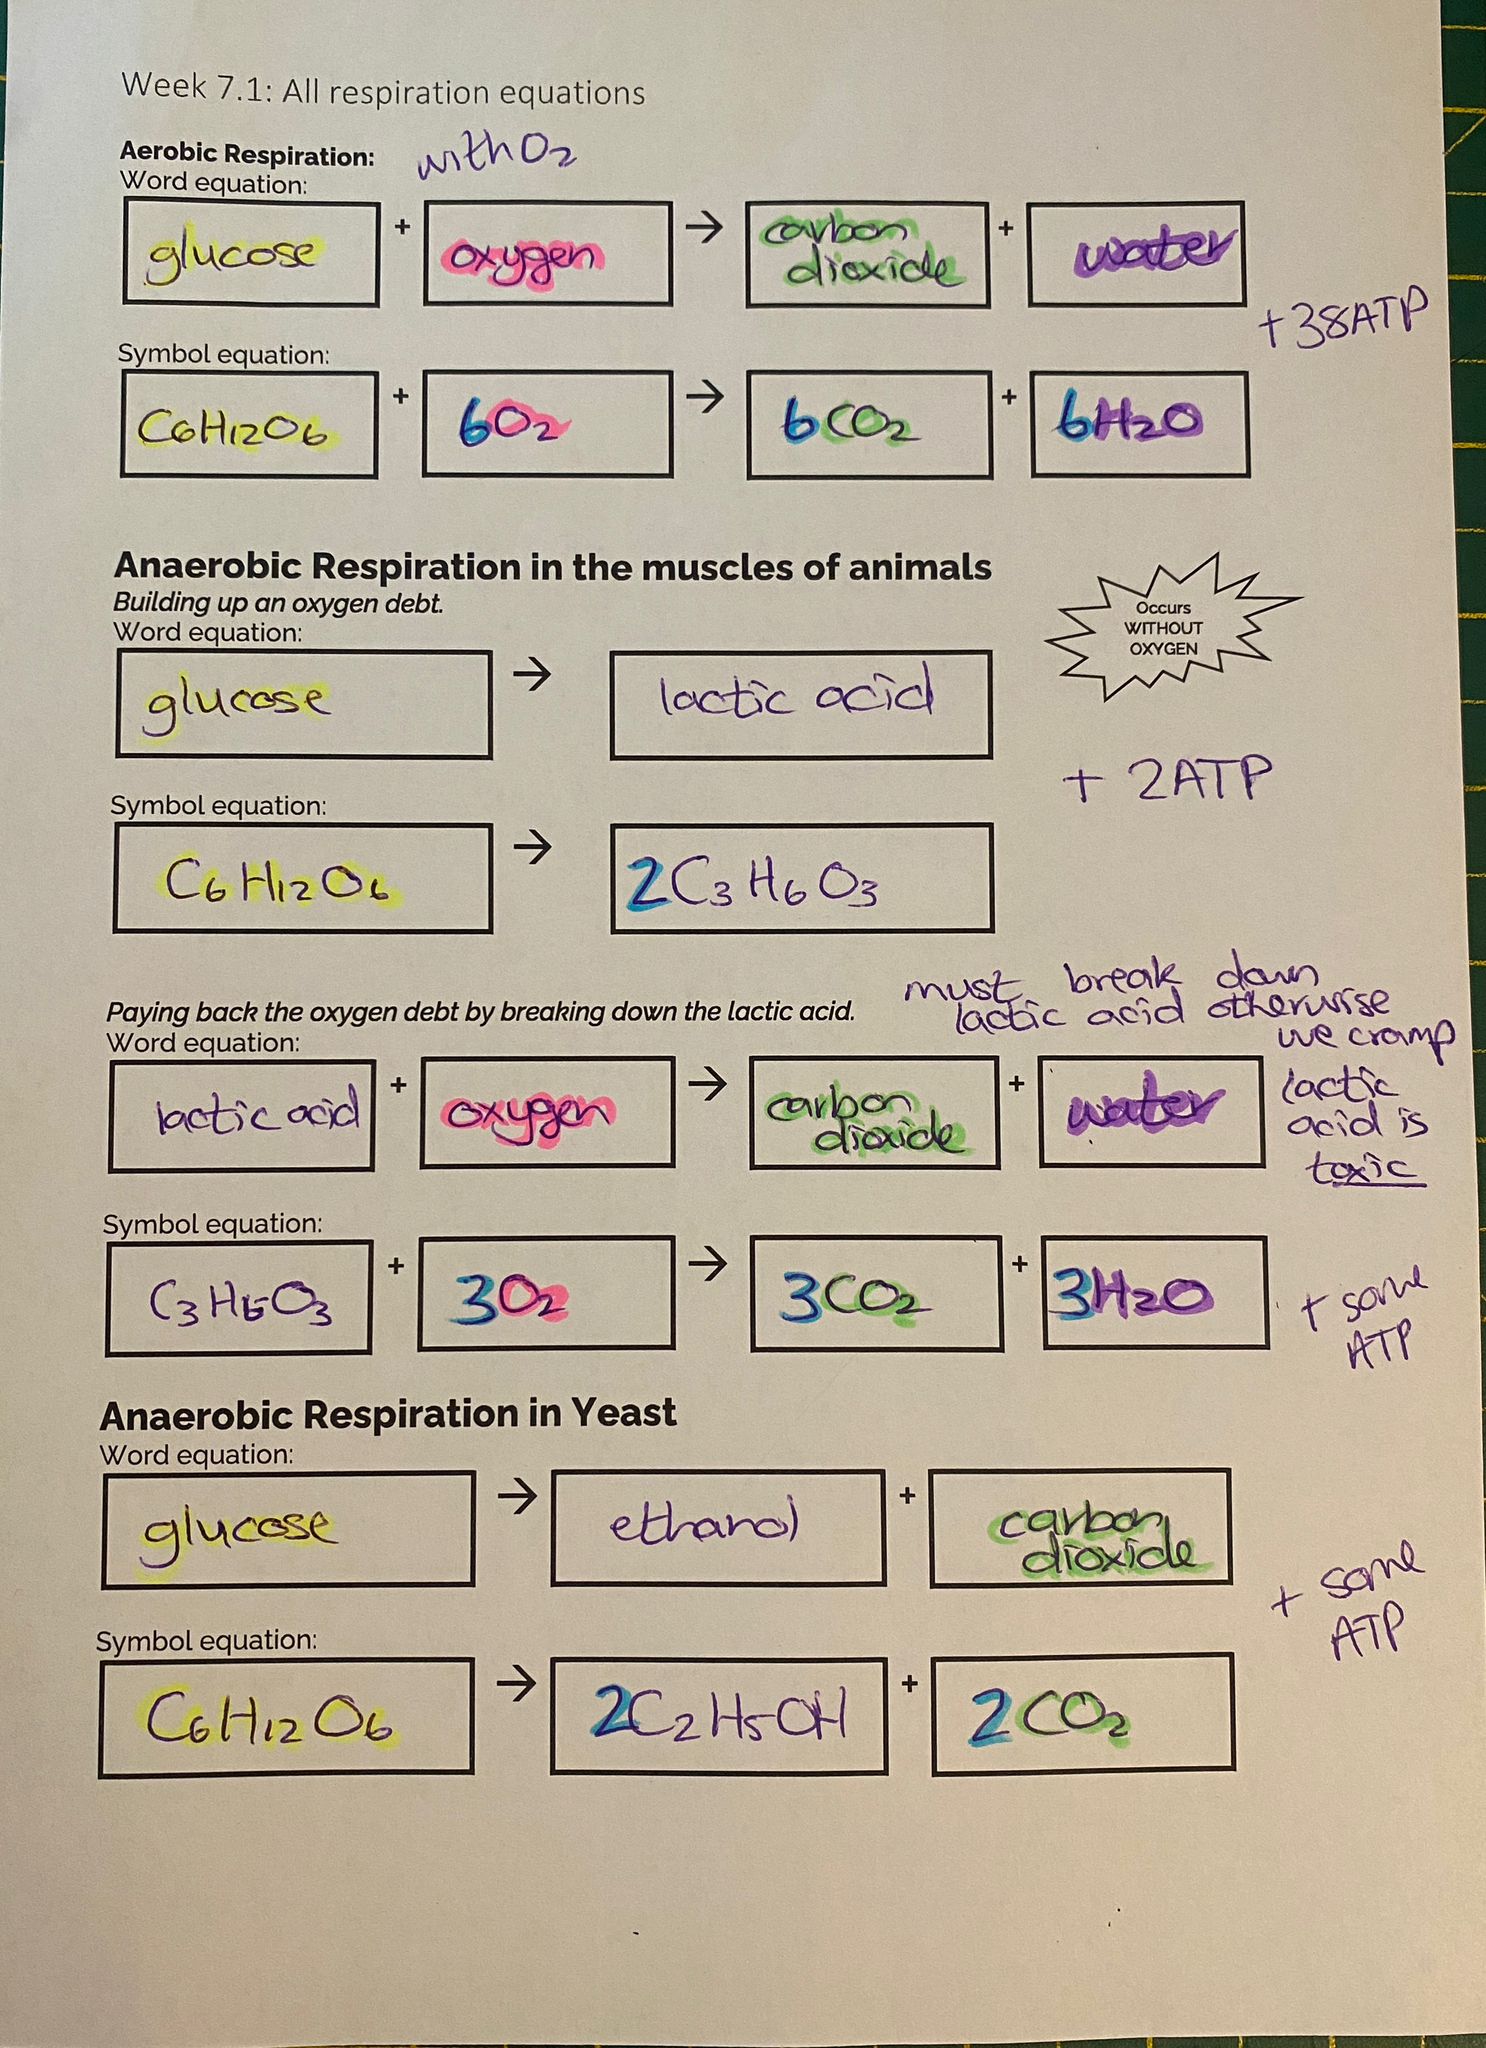 Week 7.1: All respiration equations
Aerobic Respiration: with O₂
Word equation:
glucose + oxygen → carbon dioxide + water
+38ATP
Symbol equation:
C₆H₁₂O₆ + 6O₂ → 6CO₂ + 6H₂O
Anaerobic Respiration in the muscles of animals
Building up an oxygen debt.
Word equation:
Occurs
WITHOUT
OXYGEN
glucose → lactic acid
+ 2ATP
Symbol equation:
C₆H₁₂O₆ → 2C₃H₆O₃
must break down
lactic acid otherwise
we cramp
lactic
acid is
toxic
Paying back the oxygen debt by breaking down the lactic acid.
Word equation:
lactic acid + oxygen → carbon dioxide + water
Symbol equation:
C₃H₆O₃ + 3O₂ → 3CO₂ + 3H₂O
+ some
ATP
Anaerobic Respiration in Yeast
Word equation:
glucose → ethanol + carbon dioxide
+ some
ATP
Symbol equation:
C₆H₁₂O₆ → 2C₂H₅OH + 2CO₂